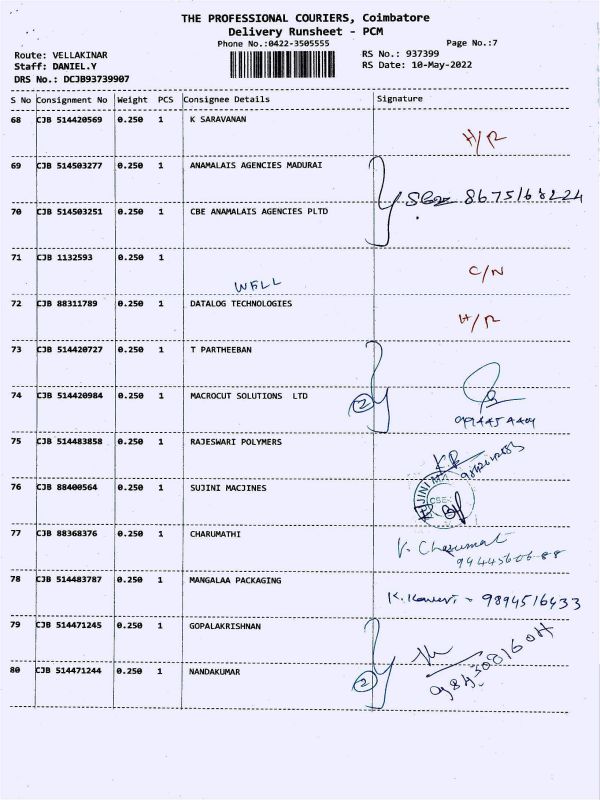 THE PROFESSIONAL COURIERS, Coimbatore
Delivery Runsheet - PCM
Phone No.:0422-3505555
Page No.:7
Route: VELLAKINAR
RS No.: 937399
Staff: DANIEL.Y
RS Date: 10-May-2022
DRS No.: DCJB93739907
S No Consignment No Weight PCS Consignee Details Signature
68 CJB 514420569 0.250 1 K SARAVANAN
H/R
69 CJB 514503277 0.250 1 ANAMALAIS AGENCIES MADURAI
70 CJB 514503251 0.250 1 CBE ANAMALAIS AGENCIES PLTD
71 CJB 1132593 0.250 1
C/N
WELL
72 CJB 88311789 0.250 1 DATALOG TECHNOLOGIES
H/R
73 CJB 514420727 0.250 1 T PARTHEEBAN
74 CJB 514420984 0.250 1 MACROCUT SOLUTIONS LTD
2
75 CJB 514483858 0.250 1 RAJESWARI POLYMERS
K.R
76 CJB 88400564 0.250 1 SUJINI MACJINES
77 CJB 88368376 0.250 1 CHARUMATHI
78 CJB 514483787 0.250 1 MANGALAA PACKAGING
9894516433
79 CJB 514471245 0.250 1 GOPALAKRISHNAN
80 CJB 514471244 0.250 1 NANDAKUMAR
2